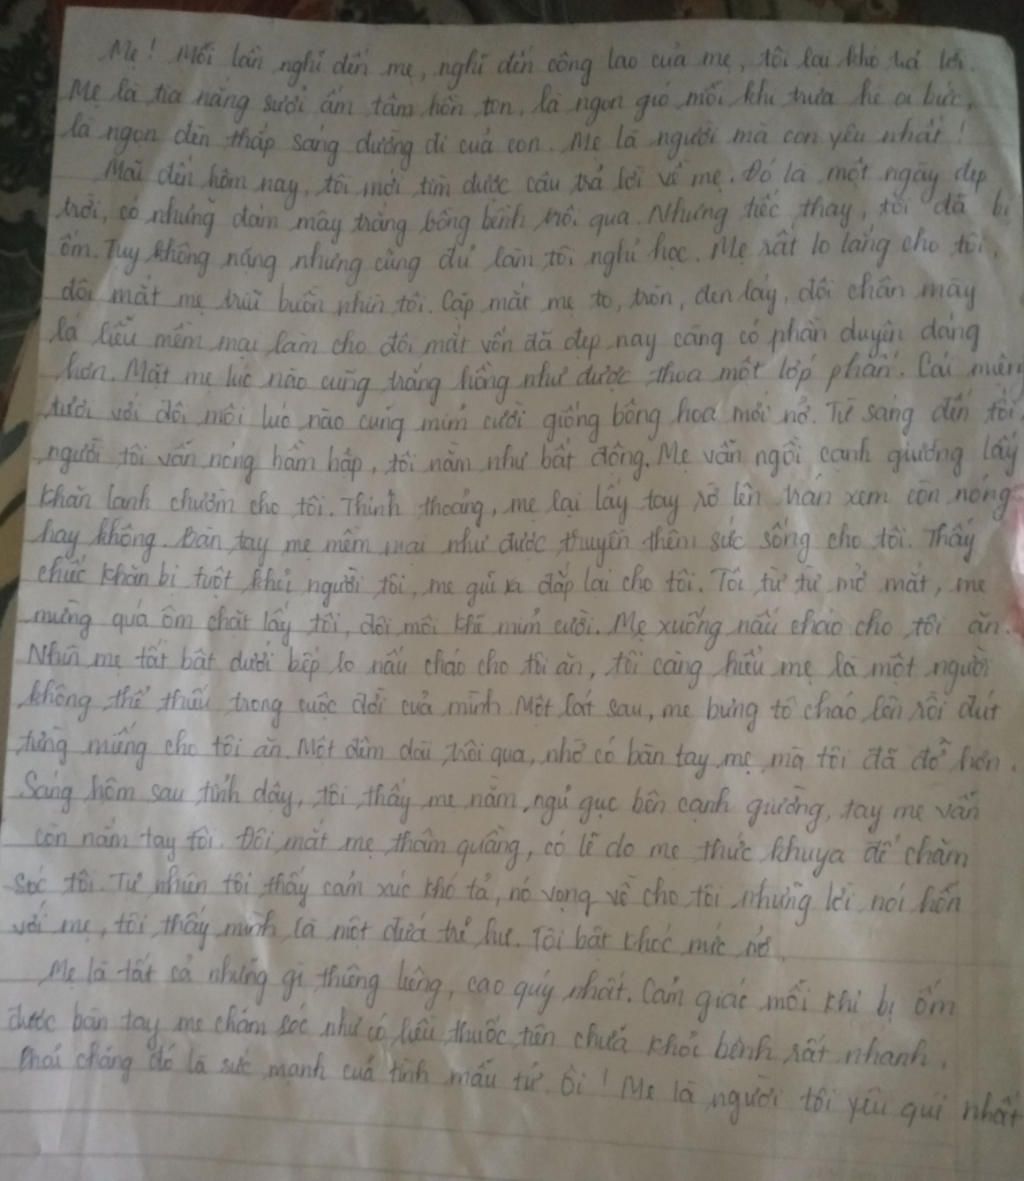 Mẹ! Mỗi lần nghĩ đến mẹ, nghĩ đến công lao của mẹ, tôi lại khó tả lời.
Mẹ là tia nắng sưởi ấm tâm hồn con, là ngọn gió mỗi khi trưa hè oi bức,
là ngọn đèn thắp sáng đường đi của con. Mẹ là người mà con yêu nhất!
Mãi đến hôm nay, tôi mới tìm được câu trả lời về mẹ. Đó là một ngày đẹp
trời, có những đám mây trắng bồng bềnh trôi qua. Nhưng tiếc thay, tôi đã bị
ốm. Tuy không nặng nhưng cũng đủ làm tôi nghỉ học. Mẹ rất lo lắng cho tôi,
đôi mắt mẹ trĩu buồn nhìn tôi. Cặp mắt mẹ to, tròn, đen láy, đôi chân mày
lá liễu mềm mại làm cho đôi mắt vốn đã đẹp nay càng có phần duyên dáng
hơn. Mặt mẹ lúc nào cũng trắng hồng như được thoa một lớp phấn. Cái miệng
tươi với đôi môi lúc nào cũng mỉm cười giống bông hoa mới nở. Từ sáng đến tối,
người tôi vẫn nóng hầm hập, tôi nằm như bất động. Mẹ vẫn ngồi cạnh giường lấy
khăn lạnh chườm cho tôi. Thỉnh thoảng, mẹ lại lấy tay rờ lên trán xem còn nóng
hay không. Bàn tay mẹ mềm mại như được truyền thêm sức sống cho tôi. Thấy
chiếc khăn bị tuột khỏi người tôi, mẹ đắp lại cho tôi. Tôi từ từ mở mắt, mẹ
mừng quá ôm chặt lấy tôi, đôi môi khẽ mỉm cười. Mẹ xuống nấu cháo cho tôi ăn.
Nhìn mẹ tất bật dưới bếp lo nấu cháo cho tôi ăn, tôi càng hiểu mẹ là một người
không thể thiếu trong cuộc đời của mình. Một lát sau, mẹ bưng tô cháo lên rồi đút
từng miếng cho tôi ăn. Một đêm dài trôi qua, nhờ có bàn tay mẹ mà tôi đã đỡ hơn.
Sáng hôm sau tỉnh dậy, tôi thấy mẹ nằm ngủ gục bên cạnh giường, tay mẹ vẫn
còn nắm tay tôi. Đôi mắt mẹ thâm quầng, có lẽ do mẹ thức khuya để chăm
sóc tôi. Tự nhiên tôi thấy cảm xúc khó tả, nó vọng về cho tôi những lời nói hỗn
với mẹ, tôi thấy mình là một đứa trẻ hư. Tôi bật khóc nức nở.
Mẹ là tất cả những gì thiêng liêng, cao quý nhất. Cảm giác mỗi khi bị ốm
được bàn tay mẹ chăm sóc như có liều thuốc tiên chữa khỏi bệnh rất nhanh.
Phải chăng đó là sức mạnh của tình mẫu tử. Ôi! Mẹ là người tôi yêu quí nhất